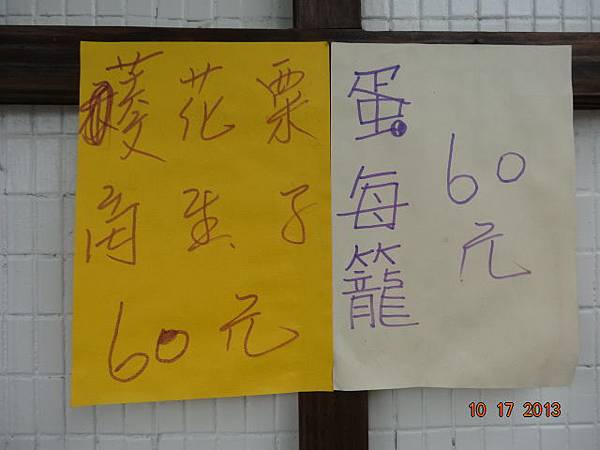 栗子
花生
菱角
60元
蛋每籠
60元
10 17 2013